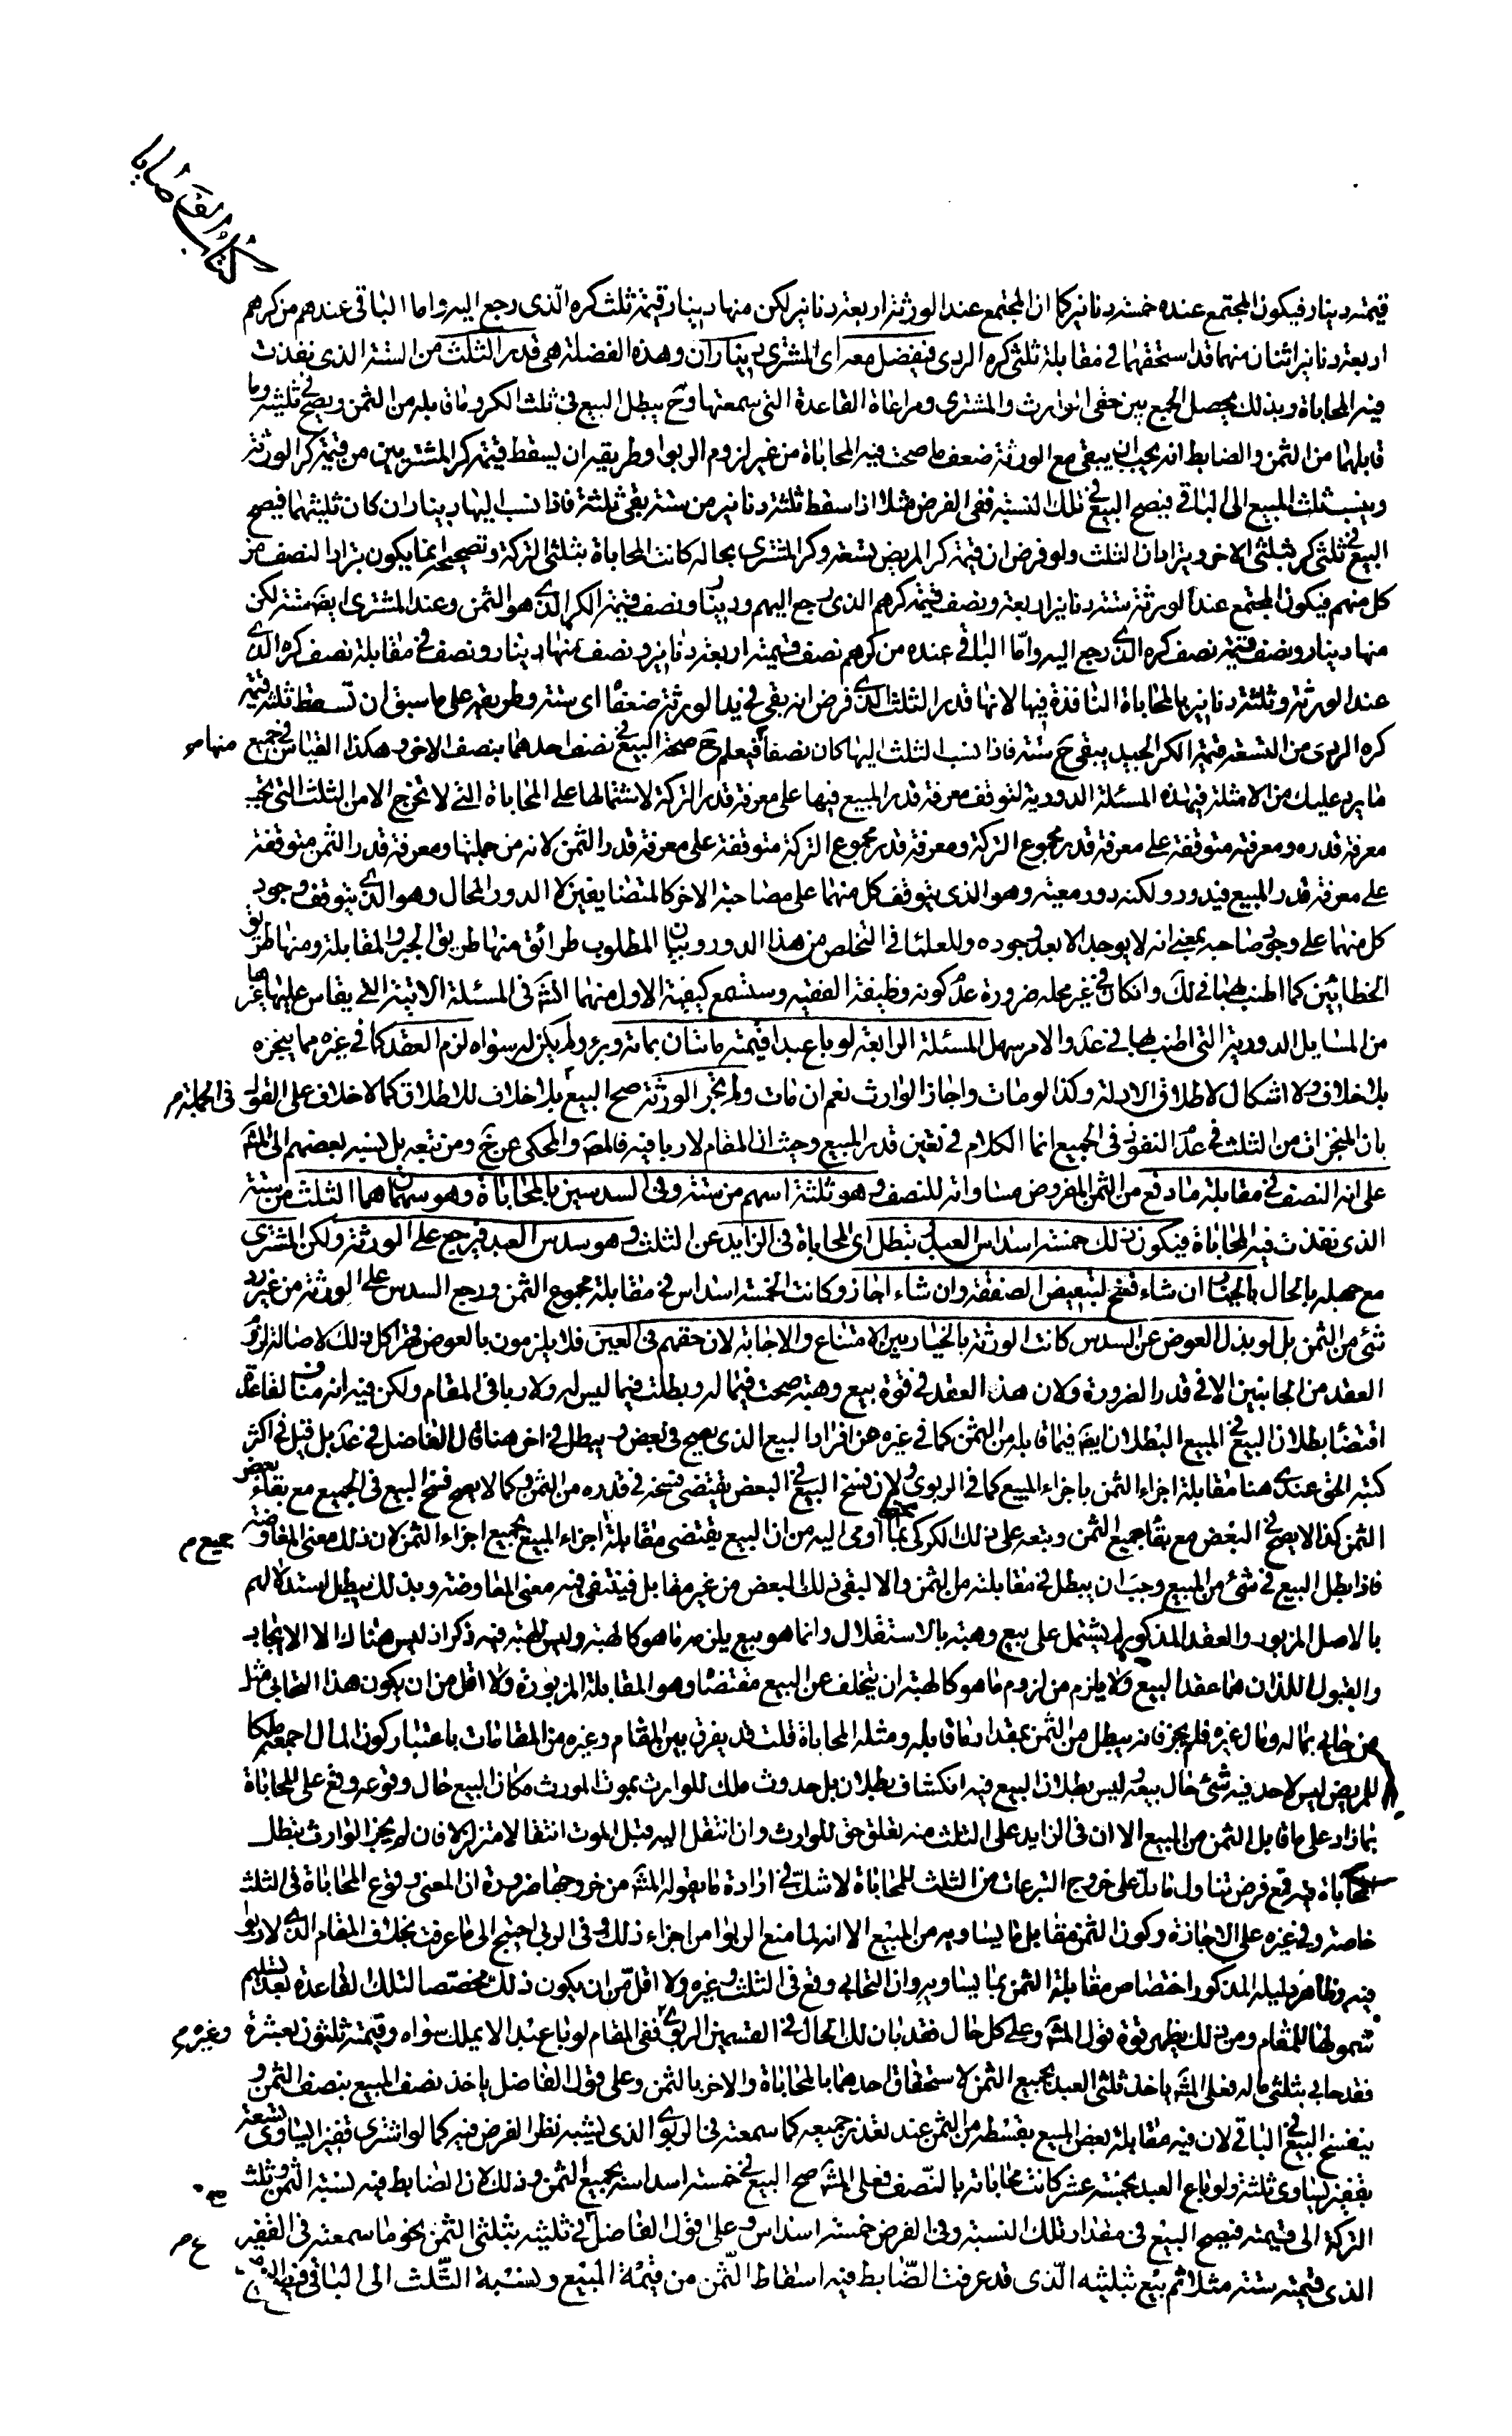 كتاب الوصايا
قيمته دينار فيكون المجتمع عنده خمسة دنانير كما ان المجتمع عند الورثة اربعة دنانير لكن منها دينار قيمة ثلث كره الّذى رجع اليه واما الباقى عندهم من كرهم
اربعة دنانير اثنان منهما قد استحقهما فى مقابلة ثلثى كره الردى فيفضل معه اى المشترى ديناران وهذه الفضلة هى قدر الثلث من الستة الذى نفذت
فيه المحاباة وبذلك يحصل الجمع بين حقى الوارث والمشترى ومراعاة القاعدة التى سمعتها وح يبطل البيع فى ثلث الكر وما قابله من الثمن ويصح فى ثلثيه وما
قابلهما من الثمن والضابط انه يجب ان يبقى مع الورثة ضعف ما صحت فيه المحاباة من غير لزوم الربوا وطريقه ان يسقط قيمة كر المشترى من قيمة كر الورثة
وينسب ثلث المبيع الى الباقى فيصح البيع فى تلك النسبة ففى الفرض مثلا اذا سقط ثلثة دنانير من ستة بقى ثلثة فاذا نسب اليها ديناران كان ثلثيها فيصح
البيع فى ثلثى كر بثلثى الاخر ويترادان الثلث ولو فرض ان قيمة كر المريض تسعة وكر المشترى بحاله كانت المحاباة بثلثى التركة وتصحيحه انما يكون بترادّ النصف من
كل منهم فيكون المجتمع عند الورثة ستة دنانير اربعة ونصف قيمة كرهم الذى رجع اليهم ودينار ونصف قيمة الكر الذى هو الثمن وعند المشترى ايضا ستة لكن
منها دينار ونصف قيمة نصف كره الذى رجع اليه وامّا الباقى عنده من كرهم نصف قيمته اربعة دنانير ونصف منها دينار ونصف فى مقابلة نصف كره الذى
عند الورثة وثلثة دنانير بالمحاباة النافذة فيها لانها قدر الثلث الذى فرض انه بقى فى يد الورثة ضعفها اى ستة وطريقه على ما سبق ان تسقط ثلثة قيمة
كره الردى من التسعة قيمة الكر الجيد يبقى ح ستة فاذا نسب الثلث اليها كان نصفا فيعلم ح صحة البيع فى نصف احدهما بنصف الاخر وهكذا القياس فى جميع
ما يرد عليك من الامثلة فهذه المسئلة الدورية لتوقف معرفة قدر المبيع فيها على معرفة قدر التركة لاشتمالها على المحاباة التى لا تخرج الا من الثلث التى يجب
معرفة قدره ومعرفته متوقفة على معرفة قدر مجموع التركة ومعرفة قدر مجموع التركة متوقفة على معرفة قدر الثمن لانه من جملتها ومعرفة قدر الثمن متوقفة
على معرفة قدر المبيع فيدور ولكنه دور معيّة وهو الذى يتوقف كل منهما على مصاحبة الاخر كالمتضايفين لا الدور المحال وهو الذى يتوقف وجود
كل منهما على وجود صاحبه بمعنى انه لا يوجد الا بعد وجوده وللعلماء فى التخلص من هذا الدور وبيان المطلوب طرائق منها طريق الجبر والمقابلة ومنها طريق
الخطائين كما اطنب بهما فى لك وان كان فى غير محله ضرورة عدم كونه وظيفة الفقيه وستسمع كيفية الاول منهما انش فى المسئلة الاتية التى يقاس عليها غيرها
من المسايل الدورية التى اطنب بها فى عد والامر سهل المسئلة الرابعة لو باع عبدا قيمته ماتان بماة وبرئ ولم يكن له سواه لزم العقد كما فى غيره مما ينجزه
بلا خلاف ولا اشكال لاطلاق الادلة وكذا لو مات واجاز الوارث نعم ان مات ولم يجز الورثة صح البيع بلا خلاف للاطلاق كما لا خلاف على القول فى الجملة
بان المنجزات من الثلث فى عدم النفوذ فى الجميع انما الكلام فى تعين قدر المبيع وحيث ان المقام لا ربا فيه فالمص والمحكى عن خ ومن تبعه بل نسبه بعضهم الى المش
على انه النصف فى مقابلة ما دفع من الثمن المفروض مساواته للنصف وهو ثلثة اسهم من ستة وفى السدسين بالمحاباة وهو سهمان هما الثلث من ستة
الذى نفذت فيه المحاباة فيكون ذلك خمسة اسداس العبد وتبطل اى المحاباة فى الزايد عن الثلث وهو سدس العبد فيرجع على الورثة ولكن المشترى
مع جهله بالحال بالخيار ان شاء فسخ لتبعيض الصفقة وان شاء اجاز وكانت الخمسة اسداس فى مقابلة مجموع الثمن ورجع السدس على الورثة من غير رد
شئ من الثمن بل لو بذل العوض عن السدس كانت الورثة بالخيار بين الامتناع والاجابة لان حقهم فى العين فلا يلزمون بالعوض كل ذلك لاصالة لزوم
العقد من الجانبين الا فى قدر الضرورة ولان هذا العقد فى قوة بيع وهبة صحت فيما له وبطلت فيما ليس له ولا ربا فى المقام ولكن فيه انه مناف لقاعدة
اقتضاء بطلان البيع فى المبيع البطلان ايضا فيما قابله من الثمن كما فى غيره من افراد البيع الذى يصح فى بعض ويبطل فى اخر هنا قال الفاضل فى عد بل قيل فى اكثر
كتبه الحق عندى هنا مقابلة اجزاء الثمن باجزاء المبيع كما فى الربوى ولان فسخ البيع فى البعض يقتضى فسخه فى قدره من الثمن وكما لا يصح فسخ البيع فى الجميع مع بقاء بعض
الثمن كذا لا يصح فى البعض مع بقاء جميع الثمن وتبعه على ذلك الكركى بما اومى اليه من ان البيع يقتضى مقابلة اجزاء المبيع بجميع اجزاء الثمن لان ذلك معنى المعاوضة جميع
فاذا بطل البيع فى شئ من المبيع وجب ان يبطل فى مقابلته من الثمن والا لبقى ذلك البعض من غير مقابل فينتفى فيه معنى المعاوضة وبذلك يبطل استدلالهم
بالاصل المزبور والعقد المذكور لم يشتمل على بيع وهبة بالاستقلال وانما هو بيع يلزمه ما هو كالهبة وليس للهبة فيه ذكر اذ ليس هناك الا الايجاب
والقبول اللذان هما عقد البيع ولا يلزم من لزوم ما هو كالهبة ان يتخلف عن البيع مقتضاه وهو المقابلة المزبورة ولا اقل من ان يكون هذا التحابى مثل
من حابى بماله ومال غيره فلم يجز فانه يبطل من الثمن بمقدار ما قابله ومثله المحاباة قلت قد يفرق بين المقام وغيره من المقامات باعتبار كون المال اجمع ملكا
للمريض ليس لاحد فيه شئ حال بيعه وليس بطلان البيع فيه انكشاف بطلان بل حدوث ملك للوارث بموت المورث فكان البيع حال وقوعه وقع على المحاباة
بما زاد على ما قابل الثمن من المبيع الا ان فى الزايد على الثلث منه تعلق حق للوارث وان انتقل اليه قبل الموت انتقالا متزلزلا فان لم يجز الوارث بطل
المحاباة فيه فمع فرض تناول ما دل على خروج التبرعات من الثلث للمحاباة لا شك فى ارادة ما يقوله المش من خروجها ضرورة ان المعنى وقوع المحاباة فى الثلث
خاصة وفى غيره على الاجازة وكون الثمن مقابل ما يساويه من المبيع الا انه لما منع الربوا من اجراء ذلك فى الربوى احتيج الى ما عرفت بخلاف المقام الذى لا ربوا
فيه وظاهر دليله المذكور اختصاص مقابلة الثمن بما يساويه وان التحابى وقع فى الثلث وغيره ولا اقل من ان يكون ذلك مخصصا لتلك القاعدة بعد تسليم
شمولها للمقام ومن ذلك يظهر قوة قول المش وعلى كل حال فقد بان لك الحال فى القسمين الربوى وغيره ففى المقام لو باع عبدا لا يملك سواه وقيمته ثلثون بعشرة
فقد حابى بثلثى ماله فعلى المش ياخذ ثلثى العبد بجميع الثمن لاستحقاق احدهما بالمحاباة والاخر بالثمن وعلى قول الفاضل ياخذ نصف المبيع بنصف الثمن و
ينفسخ البيع فى الباقى لان فيه مقابلة بعض المبيع بقسطه من الثمن عند تعذر جميعه كما سمعته فى الربوى الذى يشبه نظر الفرض فيه كما لو اشترى قفيزا يساوى تسعة
بقفيز يساوى ثلثة ولو باع العبد بخمسة عشر كانت محاباته بالنّصف فعلى المش صح البيع فى خمسة اسداسه بجميع الثمن وذلك لان الضابط فيه نسبة الثمن وثلث
التركة الى قيمته فيصح البيع فى مقدار تلك النسبة وفى الفرض خمسة اسداس وعلى قول الفاضل فى ثلثيه بثلثى الثمن نحو ما سمعته فى القفيز
الذى قيمته ستة مثلا ثم بيع بثلثيه الّذى قد عرفت الضّابط فيه اسقاط الثّمن من قيمة المبيع ونسبة الثّلث الى الباقى